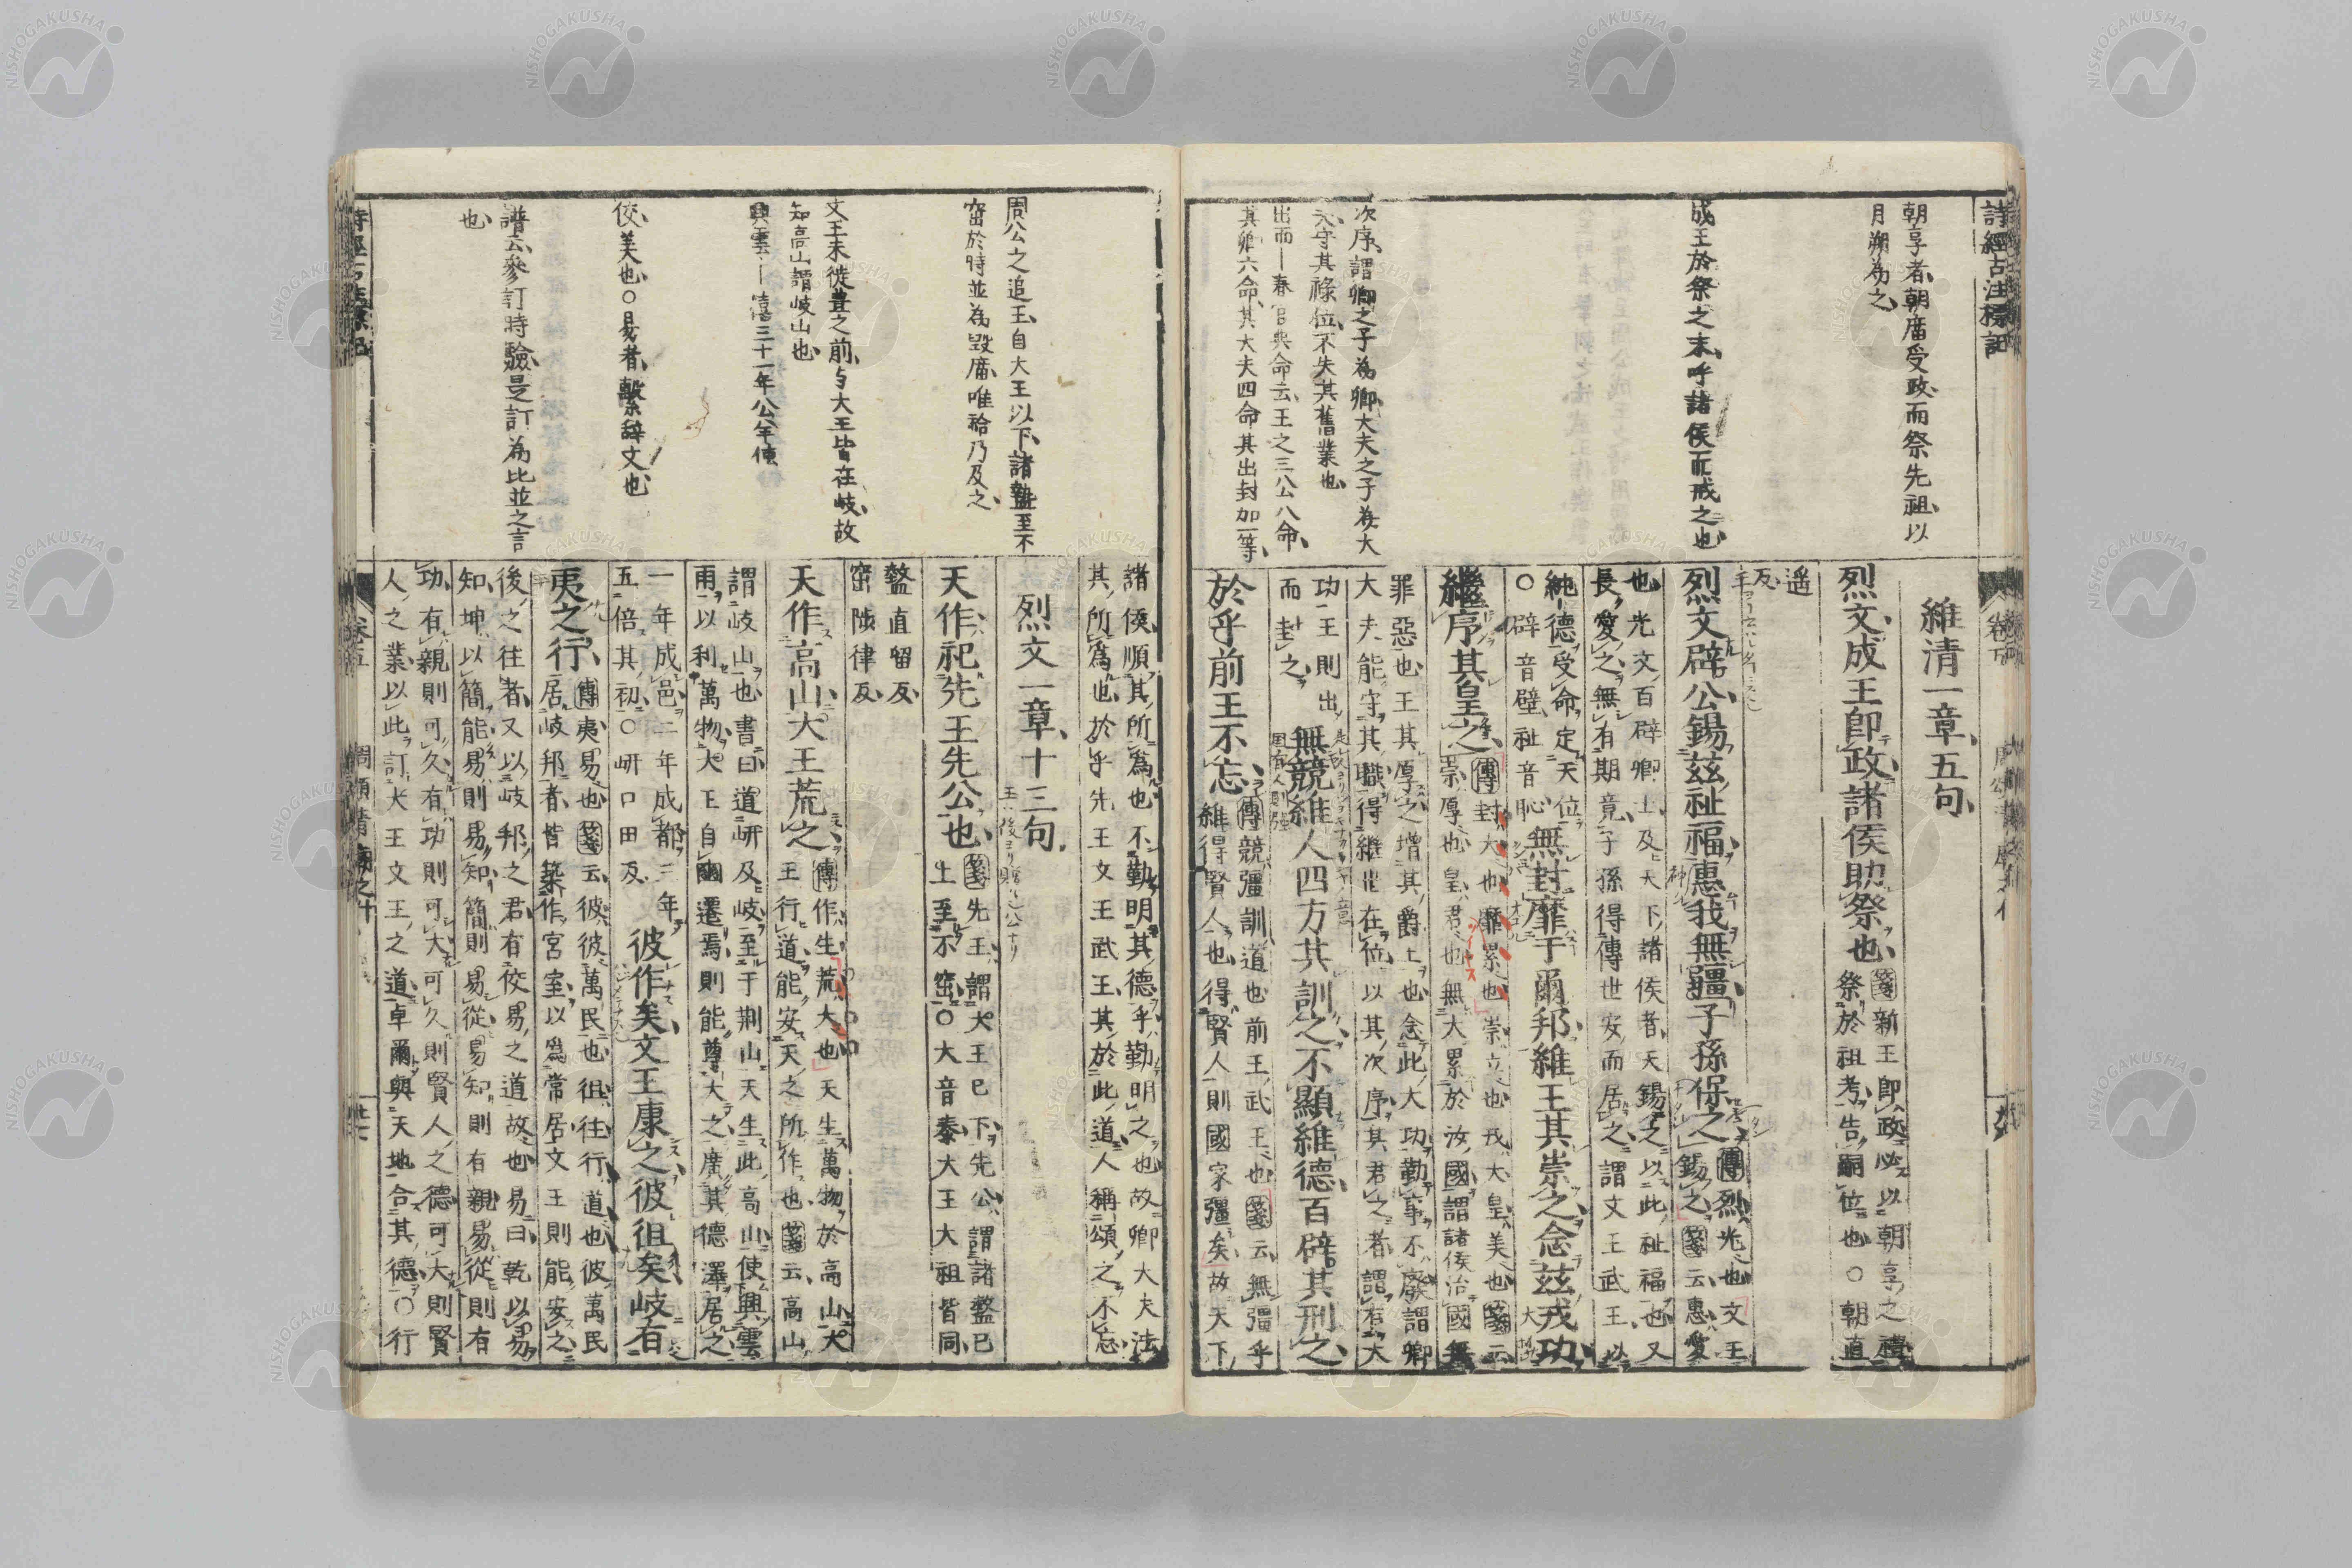 詩經古注標記
朝享者、朝廣受政、而祭先祖、以
月朔為之、
成王於祭之末、呼諸侯而戒之也
次序、謂卿之子為卿、大夫之子為大
夫、守其祿位、不失其舊業也、
出而—春官典命云、王之三公八命、
其卿六命、其大夫四命、其出封加一等、
維清一章、五句、
烈文、成王卽政、諸侯助祭也、
箋新王卽政、必以朝享之禮
祭於祖考、告嗣位也〇朝直
遥
反
烈文辟公、錫茲祉福、惠我無疆、子孫保之、
傳烈光也、文王
錫之箋云、惠愛
也、光文、百辟卿士、及天下諸侯者、天錫之、以此祉福也、又
長愛之、無有期竟、子孫得傳世、安而居之、謂文王武王、以
純德受命、定天位、
〇辟音壁、祉音恥、
無封靡于爾邦、維王其崇之、念茲戎功、
繼序其皇之、
傳封大也、靡累也、崇立也、戎大、皇美也、箋云、
崇厚也、皇君也、無大累於汝國、謂諸侯治國無
罪惡也、王其厚之、增其爵土也、念此大功、勤事不廢、謂卿
大夫能守其職、得繼世在位、以其次序、其君之者、謂有大
功、王則出
而封之、
無競維人、四方其訓之、不顯維德、百辟其刑之、
於乎前王不忘、
傳競彊、訓道也、前王武王也、箋云、無彊乎
維得賢人也、得賢人、則國家彊矣、故天下
周公之追王、自大王以下、諸盩至不
窋、於時並為毀廣、唯祫乃及之、
文王未徙豊之前、与大王皆在岐、故
知高山謂岐山也、
興雲—僖三十一年公羊傳
佼、美也、〇易者、繫辞文也、
譜云、參訂時驗、是訂為比並之言
也
諸侯順其所為也、不勤明其德乎、勤明之也、故卿大夫法
其所為也、於乎先王、文王武王、其於此道、人稱頌之不忘
烈文一章、十三句、
天作、祀先王先公也、
箋先王、謂大王已下、先公、謂諸盩已
上至不窋、〇大音泰、大王大祖皆同、
盩直留反
窋陟律反
天作高山、大王荒之、
傳作生、荒大也、天生萬物於高山、大
王行道、能安天之所作也、箋云、高山
謂岐山也、書曰、道岍及岐、至于荆山、天生此高山、使興雲
雨、以利萬物、大王自豳遷焉、則能尊大之、廣其德澤、居之
一年成邑、二年成都、三年
五倍其初〇岍口田反
彼作矣、文王康之、彼徂矣、岐有
夷之行、
傳夷易也、箋云、彼、彼萬民也、徂往、行道也、彼萬民
居岐邦者、皆築作宮室、以為常居、文王則能安之、
後之往者、又以岐邦之君、有佼易之道故也、易曰、乾以易
知、坤以簡能、易則易知、簡則易從、易知則有親、易從則有
功、有親則可久、有功則可大、可久則賢人之德、可大則賢
人之業、以此訂大王文王之道、卓爾與天地合其德、〇行